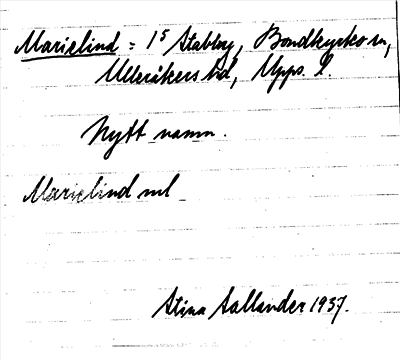 Marielind = 1⁵ Stabby, Bondkyrko sn,
Ulleråkers hd, Upps. l.
Nytt namn.
Marielind ml
Stina Sallander 1937.